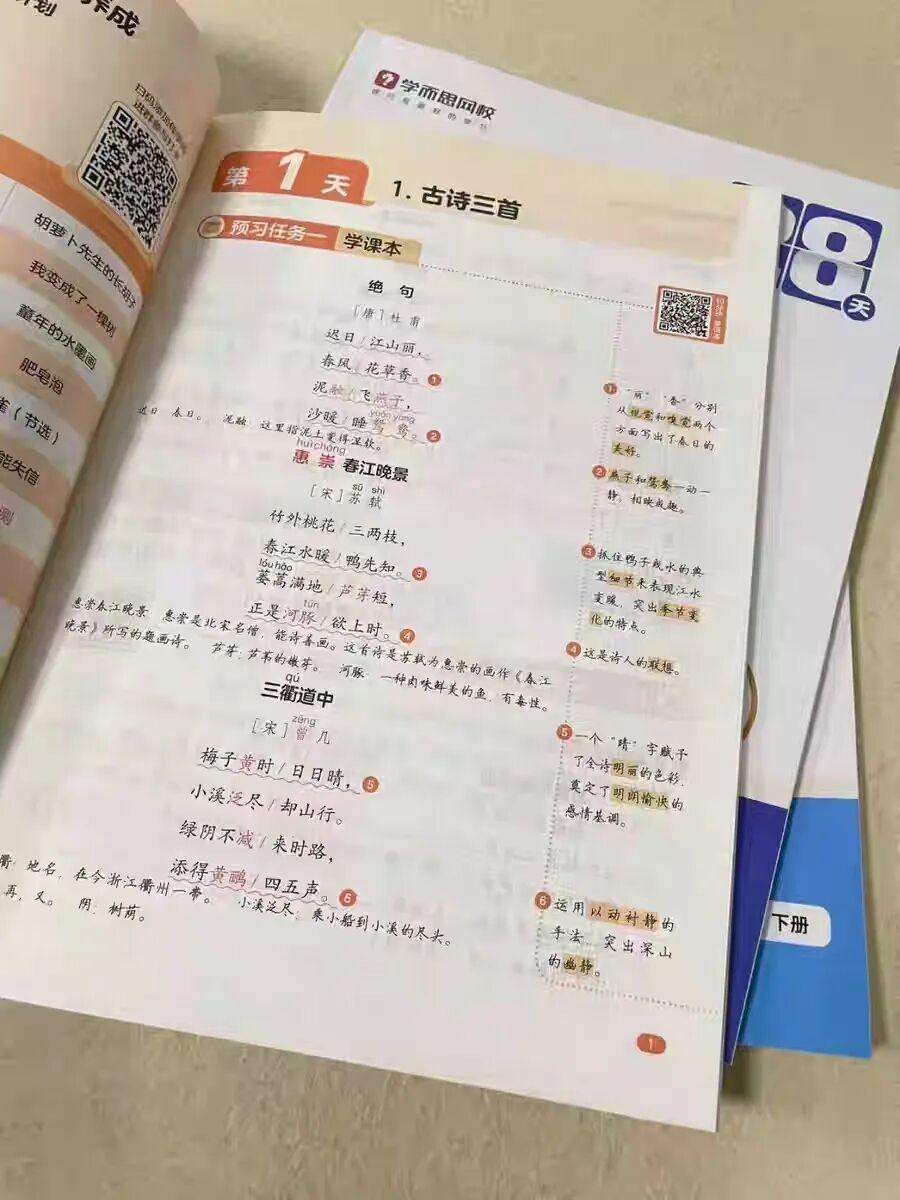 养成
计划
扫码添加伴学
进群参与打卡
胡萝卜先生的长胡子
我变成了一棵树
童年的水墨画
肥皂泡
（节选）
能失信
测
学而思网校
8
天
下册
第1天
1. 古诗三首
预习任务一 学课本
绝句
［唐］杜甫
迟日/江山丽，
春风/花草香。1
泥融/飞燕子，
yuān yāng
沙暖/睡鸳鸯。2
迟日 春日。 泥融：这里指泥土变得湿软。
huì chóng
惠崇春江晚景
sū shì
［宋］苏轼
竹外桃花/三两枝，
春江水暖/鸭先知。3
lóu hāo
蒌蒿满地/芦芽短，
tún
正是河豚/欲上时。4
惠崇春江晚景 惠崇是北宋名僧，能诗善画。这首诗是苏轼为惠崇的画作《春江
晚景》所写的题画诗。 芦芽：芦苇的嫩芽。 河豚：一种肉味鲜美的鱼，有毒性。
qú
三衢道中
zēng
［宋］曾几
梅子黄时/日日晴，5
小溪泛尽/却山行。
绿阴不减/来时路，
添得黄鹂/四五声。6
衢：地名，在今浙江衢州一带。 小溪泛尽：乘小船到小溪的尽头。
再，又。 阴：树荫。
1 “丽”“香”分别
从视觉和嗅觉两个
方面写出了春日的
美好。
2 燕子和鸳鸯一动一
静，相映成趣。
3 抓住鸭子戏水的典
型细节来表现江水
变暖，突出季节变
化的特点。
4 这是诗人的联想。
5 一个“晴”字赋予
了全诗明丽的色彩，
奠定了明朗愉快的
感情基调。
6 运用以动衬静的
手法，突出深山
的幽静。
1